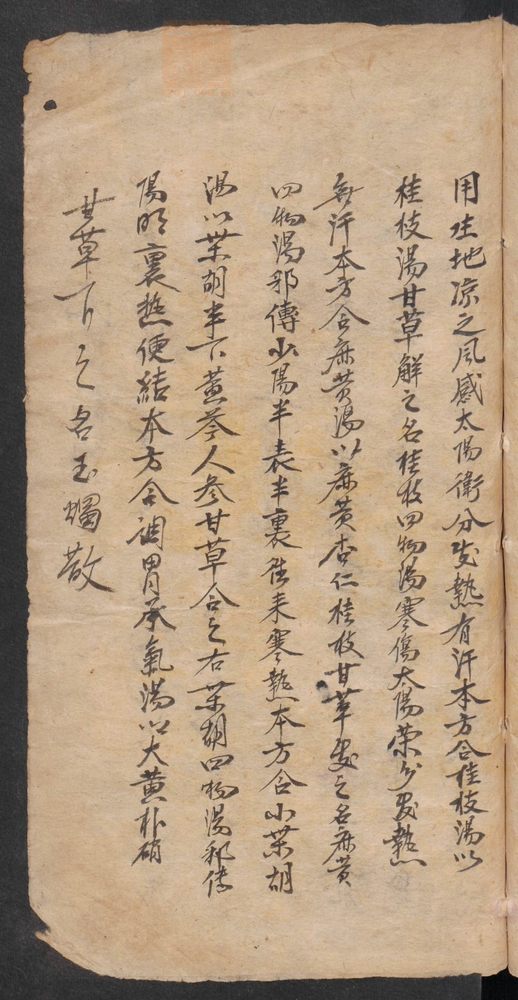 用生地涼之風感太陽衛分發熱有汗本方合桂枝湯以
桂枝湯甘草解之名桂枝四物湯寒傷太陽榮分發熱
無汗本方合麻黄湯以麻黄杏仁桂枝甘草發之名麻黄
四物湯邪傳少陽半表半裏往来寒熱本方合小柴胡
湯以柴胡半下黄芩人参甘草合之右柴胡四物湯邪傳
陽明裏熱便結本方合調胃承氣湯以大黄朴硝
甘草下之名玉燭散